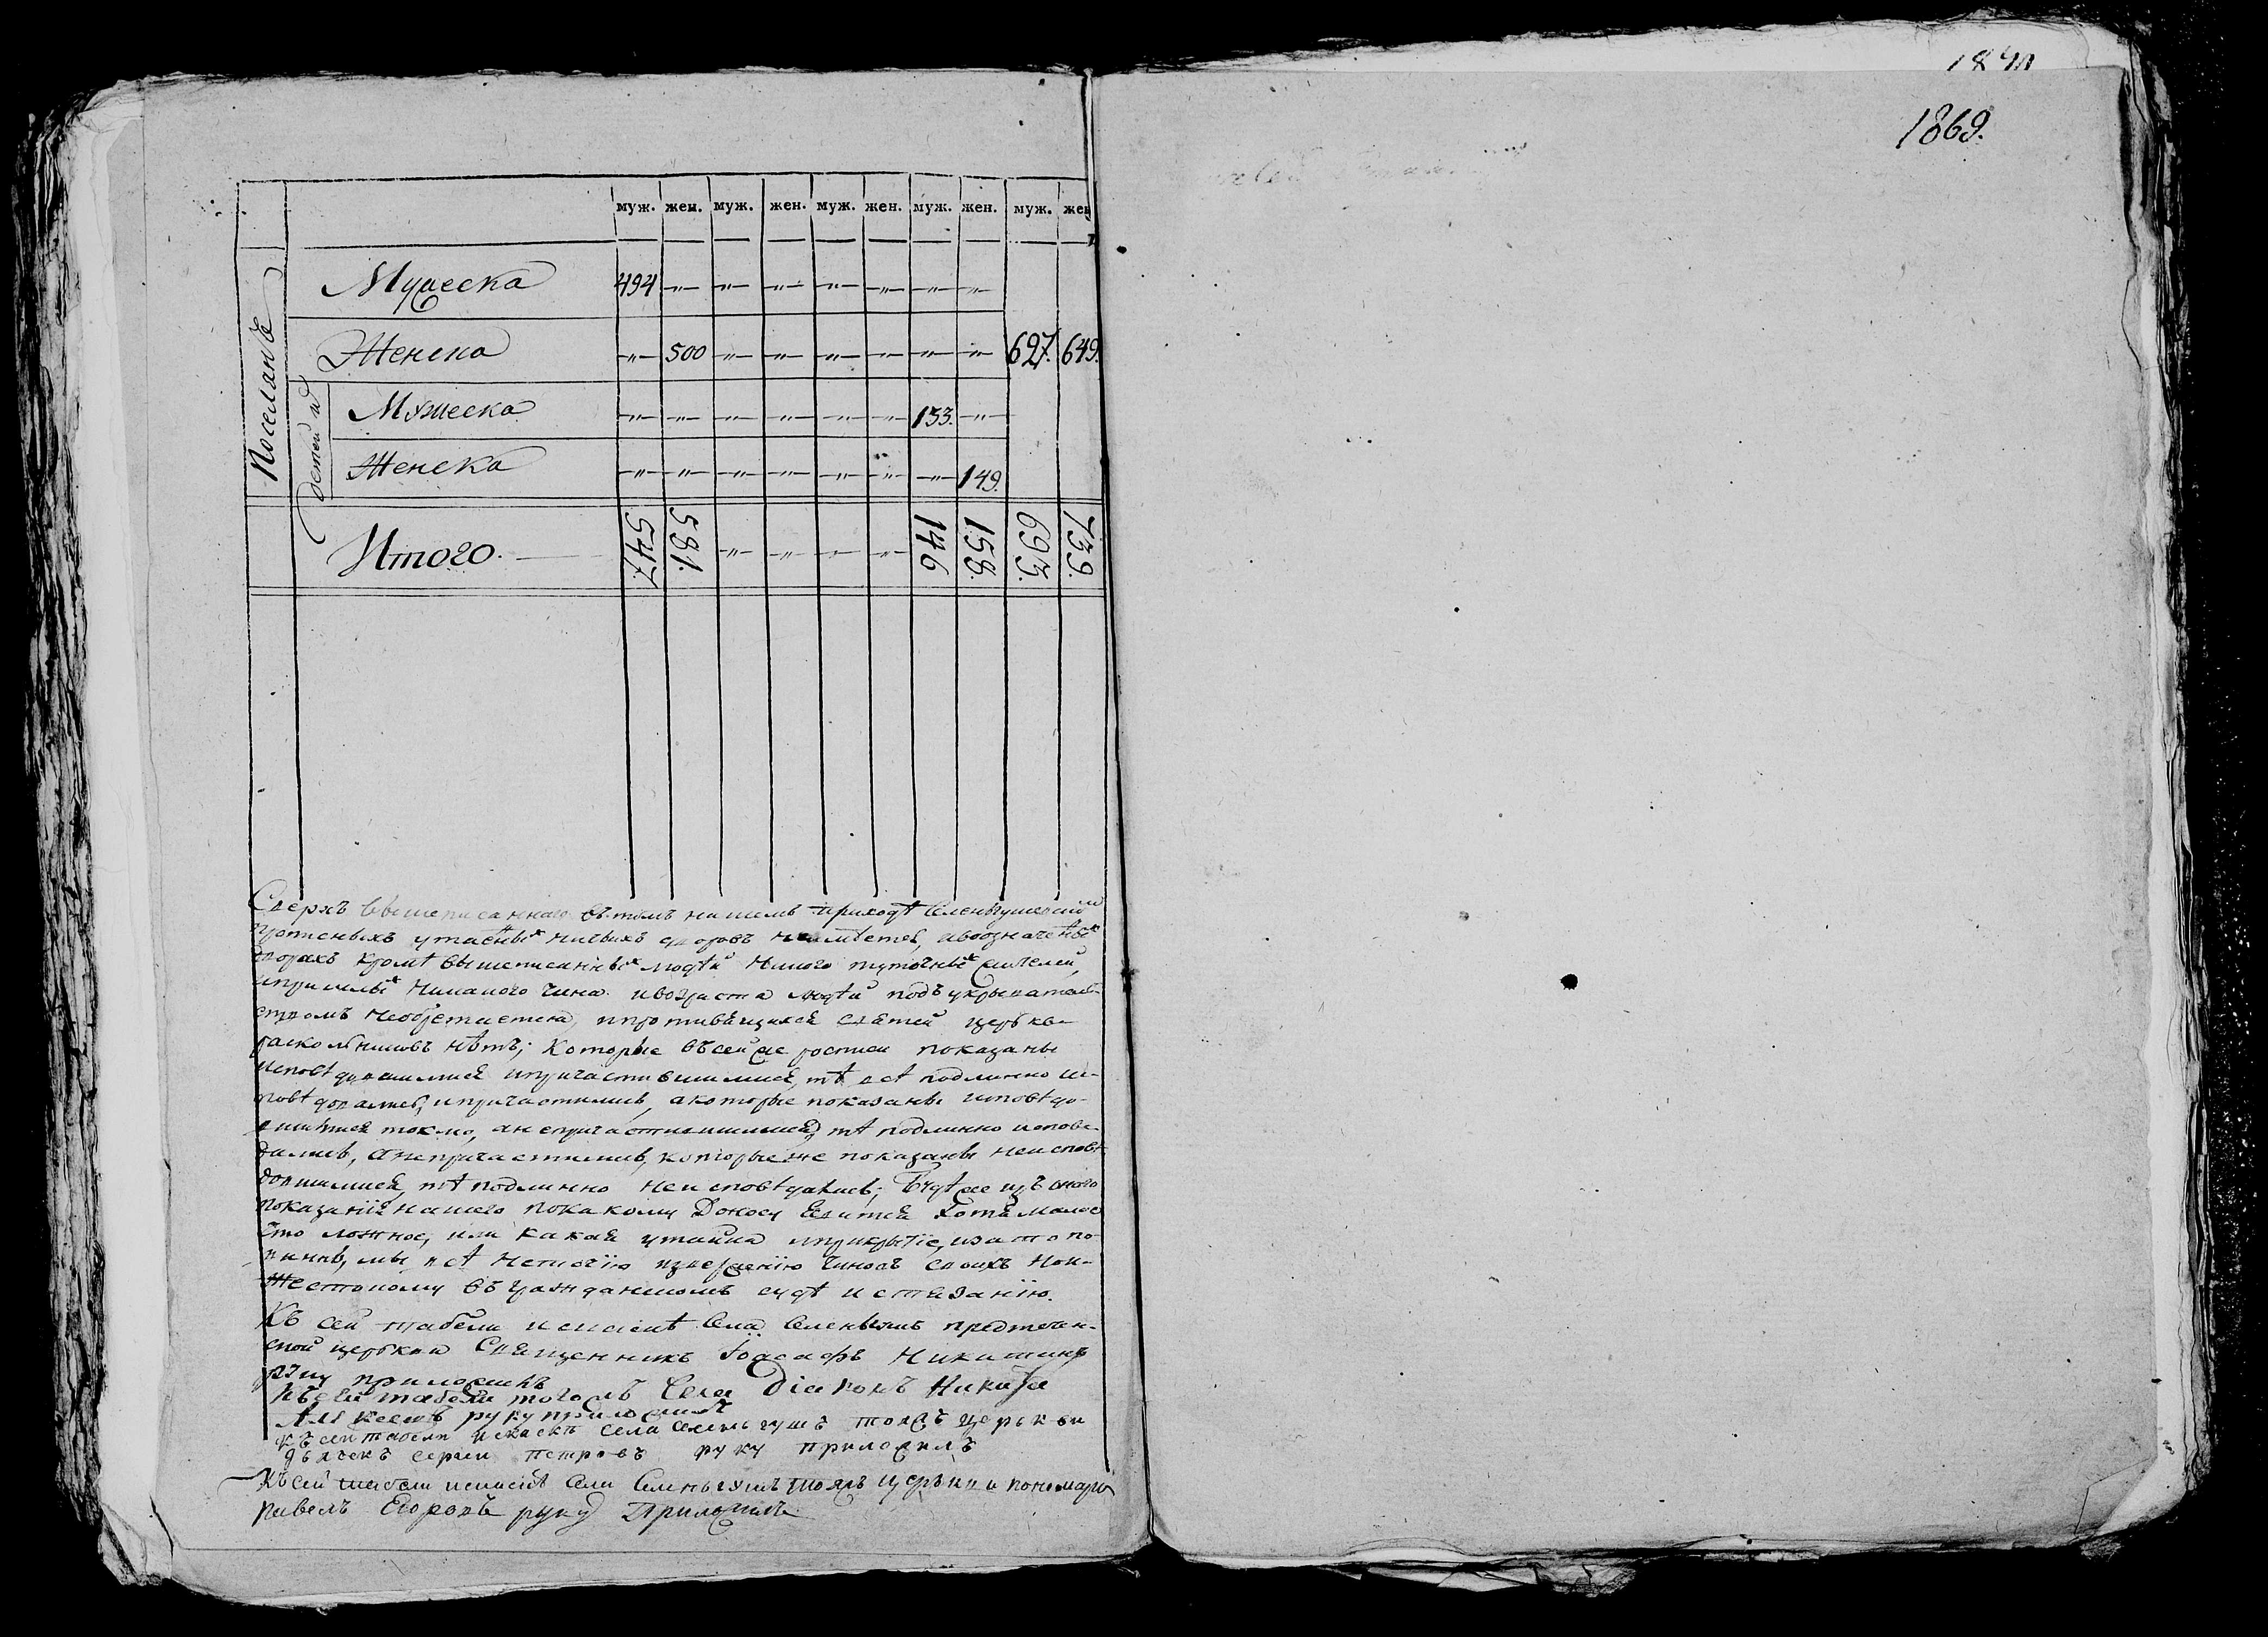 1869.
муж. жен. муж. жен. муж. жен. муж. жен. муж. жен
Поселанѣ
Мужеска 494 —„— —„— —„— —„— —„— —„— —„—
Женска —„— 500 —„— —„— —„— —„— —„— —„— 627. 649.
детей ихъ
Мужеска —„— —„— —„— —„— —„— —„— 133. —„—
Женска —„— —„— —„— —„— —„— —„— —„— 149.
Итого. 547. 581. —„— —„— —„— —„— 146 158. 693. 739.
Сверхъ вышеписаннаго въ томъ нашемъ приходѣ
утаенныхъ ничьихъ дворовъ неимѣется, ивоозначенныхъ
дворахъ кромѣ вышеписанныхъ людѣй тутошныхъ жителей,
ипришлыхъ чина ивозраста людѣй подъ укрывател-
ствомъ необретается, ипротивящихся святей церькве
раскольниковъ нѣтъ; которые въсей же росписи показаны
исповѣдавшимися ипричастившимися, тѣ всѣ подлинно ис-
повѣдовались, ипричастились, акоторые показаны исповѣдо-
вшимися токмо, анепричастившимися, тѣ подлинно испове-
дались, анепричастились, которыеже показаны неисповѣ-
довшимися, тѣ подлинно неисповѣдались; Будѣже изъ оного
показанія нашего покакому доносу явится хотя малое
что ложное, или какая утайка иприкрытіе, изато по-
винны, мы всѣ изверженію чиновъ своихъ
жестокому въ гражданскомъ судѣ истязанію.
Къ сей табели Села предтечен-
ской церькви Священникъ Іоасафъ Никитинъ
руку приложилъ
Къ сей табели тогожъ Села Діаконъ Никита
Алѣксеевъ руку приложилъ
къ сей табели села тояжъ церькви
дьячекъ сергѣй петровъ руку приложилъ
Къ сей табели Села тояжъ церькви пономарь
Павелъ Егоровъ руку Приложилъ